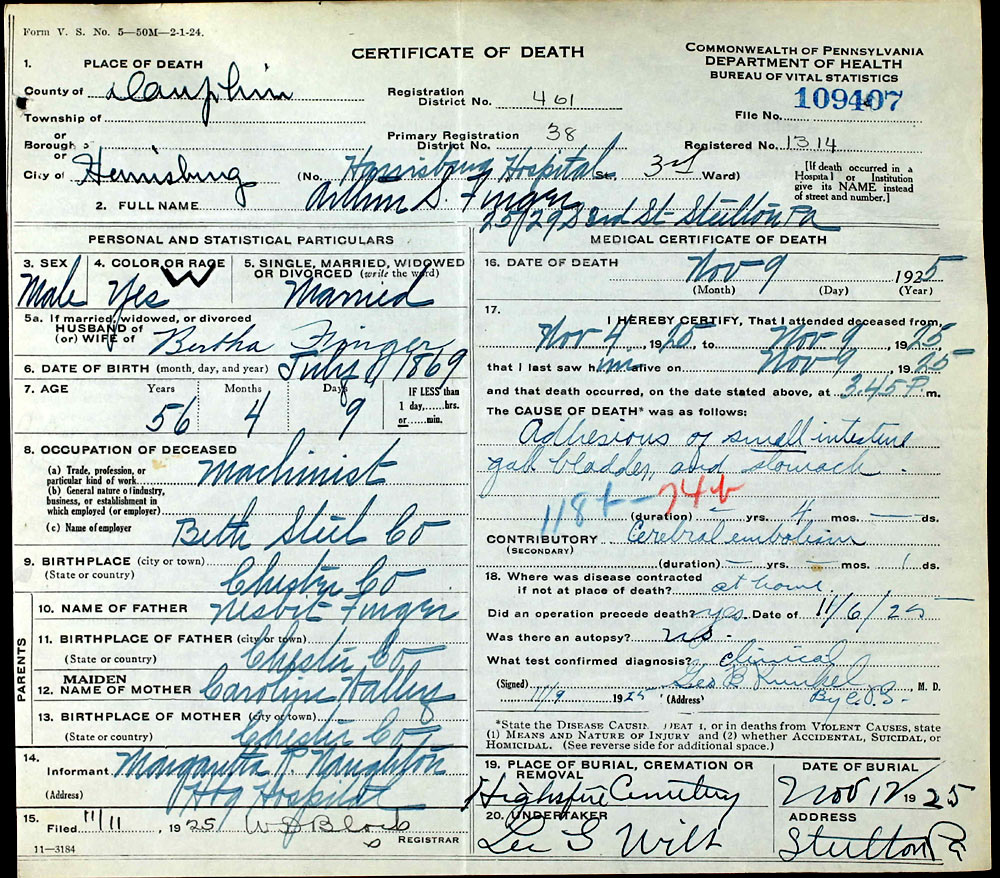 Form V. S. No. 5—50M—2-1-24.
CERTIFICATE OF DEATH
COMMONWEALTH OF PENNSYLVANIA
DEPARTMENT OF HEALTH
BUREAU OF VITAL STATISTICS
1. PLACE OF DEATH
County of Dauphin
Registration District No. 461
109407
File No.
Township of
or
Borough
or
Primary Registration District No. 38
Registered No. 1314
City of Harrisburg (No. Harrisburg Hospital St. 3rd Ward)
[If death occurred in a Hospital or Institution give its NAME instead of street and number.]
2. FULL NAME Arthur S. Finger
2529 S 3rd St- Steelton Pa
PERSONAL AND STATISTICAL PARTICULARS
3. SEX Male
4. COLOR OR RACE Yes W
5. SINGLE, MARRIED, WIDOWED OR DIVORCED (write the word) Married
5a. If married, widowed, or divorced
HUSBAND of
(or) WIFE of Bertha Finger
6. DATE OF BIRTH (month, day, and year) July 1 1869
7. AGE Years 56 Months 4 Days 9 IF LESS than 1 day,......hrs. or......min.
8. OCCUPATION OF DECEASED
(a) Trade, profession, or particular kind of work Machinist
(b) General nature of industry, business, or establishment in which employed (or employer)
(c) Name of employer Beth Steel Co
9. BIRTHPLACE (city or town)
(State or country) Chester Co
PARENTS
10. NAME OF FATHER Nesbit Finger
11. BIRTHPLACE OF FATHER (city or town)
(State or country) Chester Co
12. MAIDEN NAME OF MOTHER Caroline
13. BIRTHPLACE OF MOTHER (city or town)
(State or country) Chester Co
14. Informant Margaretta P. Naughton
(Address) Hbg Hospital
15. Filed 11/11, 1925
REGISTRAR
11—3184
MEDICAL CERTIFICATE OF DEATH
16. DATE OF DEATH Nov 9 1925
(Month) (Day) (Year)
17. I HEREBY CERTIFY, That I attended deceased from
Nov 4, 1925, to Nov 9, 1925,
that I last saw him alive on Nov 9, 1925
and that death occurred, on the date stated above, at 3.45 P m.
The CAUSE OF DEATH* was as follows:
Adhesions of small intestine
gall bladder, and stomach.
118 74b
(duration) — yrs. 4 mos. — ds.
CONTRIBUTORY Cerebral embolism
(SECONDARY)
(duration) — yrs. — mos. 1 ds.
18. Where was disease contracted
if not at place of death? at home
Did an operation precede death? yes. Date of 11/6/25
Was there an autopsy? no.
What test confirmed diagnosis? Clinical
(Signed) Geo B Kunkel, M. D.
11/9 1925 (Address) By
*State the DISEASE CAUSING DEATH, or in deaths from VIOLENT CAUSES, state
(1) MEANS AND NATURE OF INJURY and (2) whether ACCIDENTAL, SUICIDAL, or
HOMICIDAL. (See reverse side for additional space.)
19. PLACE OF BURIAL, CREMATION OR REMOVAL
Highspire Cemetery
DATE OF BURIAL
Nov 12 1925
20. UNDERTAKER
Lee S Wilt
ADDRESS
Steelton Pa